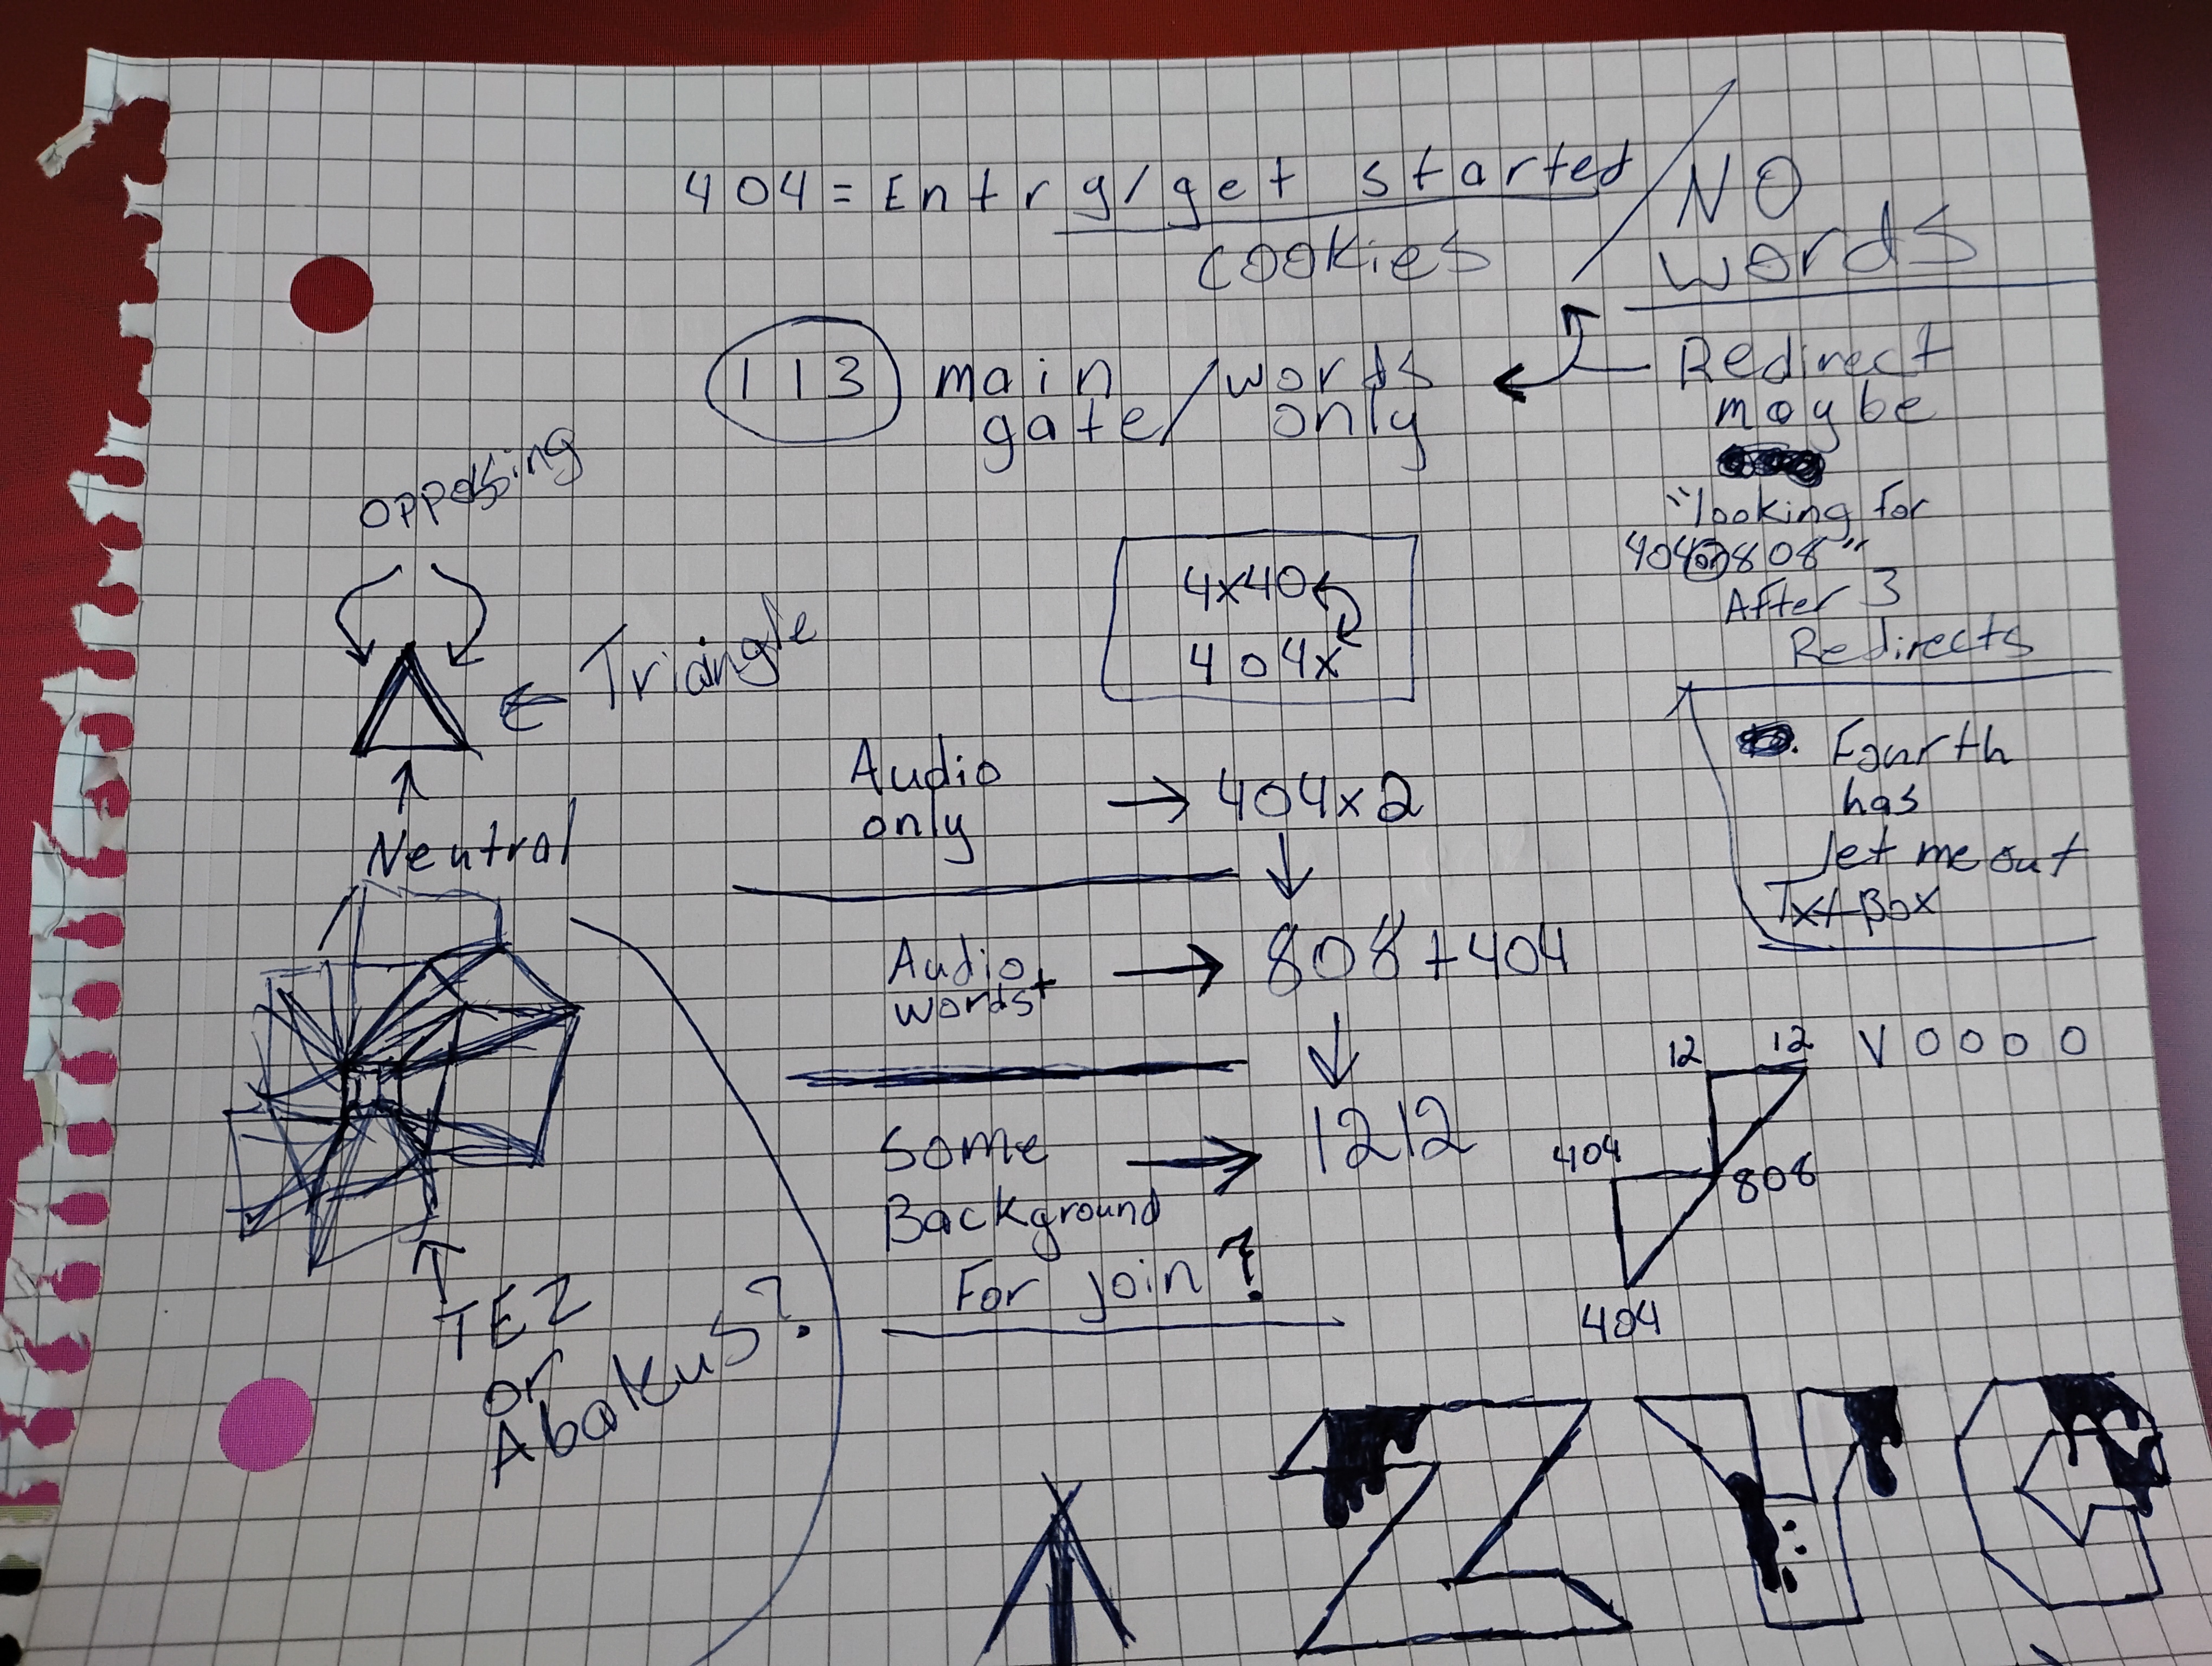 404 = Entry/get started
cookies
NO
words
113 main
gate/words
only
Redirect
maybe
"looking for
404 or 808"
After 3
Redirects
opposing
Triangle
Neutral
4x40
404x
Fourth
has
let me out
Txt Box
Audio
only → 404x2
Audio +
words → 808+404
Some
Background → 1212
For join?
12 12 V0000
404 808
404
TEZ
or
Abakus?